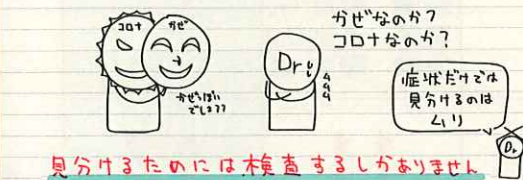 コロナ
かぜ
かぜっぽい
でしょ??
Dr
かぜなのか?
コロナなのか?
症状だけでは
見分けるのは
ムリ
Dr
見分けるためには検査するしかありません